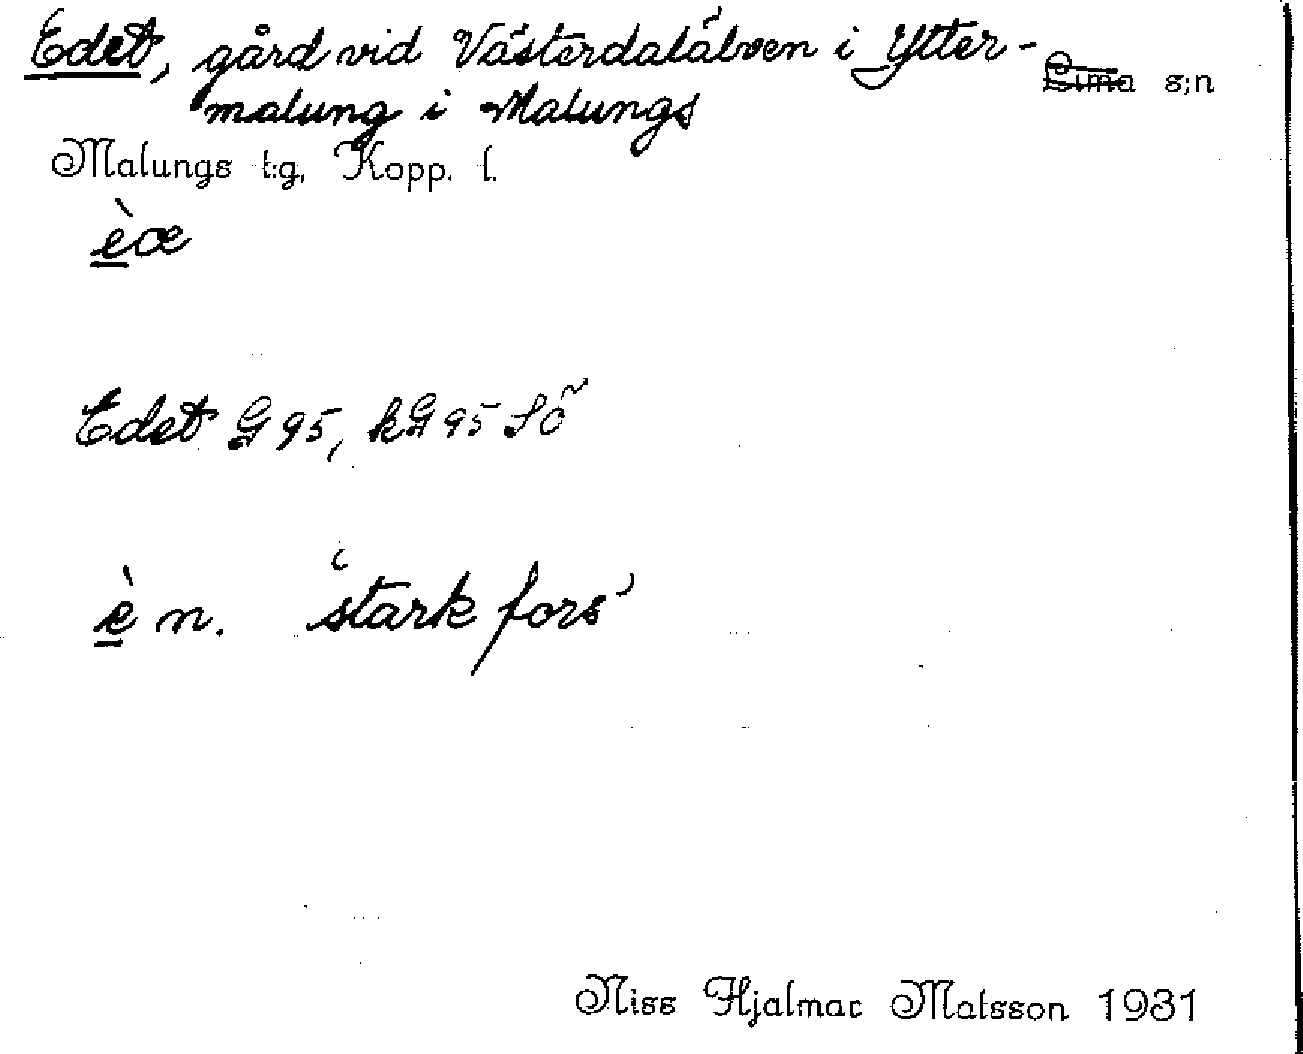 Edet, gård vid Västerdalälven i Ytter-
Lima s:n
malung i Malungs
Malungs t:g, Kopp. l.
èæ
Edet G 95, kG 95 Sö
è n. ‘stark fors’
Niss Hjalmar Matsson 1931